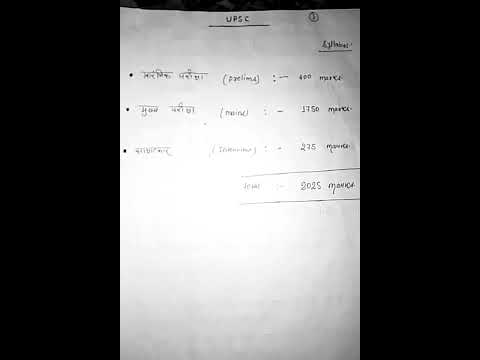 UPSC
1
Syllabus
• प्रारंभिक परीक्षा (prelims) :- 400 marks.
• मुख्य परीक्षा (mains) :- 1750 marks.
• (Interview) :- 275 marks.
Total :- 2025 marks.